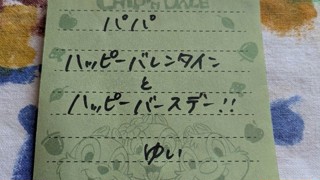 CHIP'N DALE
パパ
ハッピーバレンタイン
と
ハッピーバースデー!!
ゆい